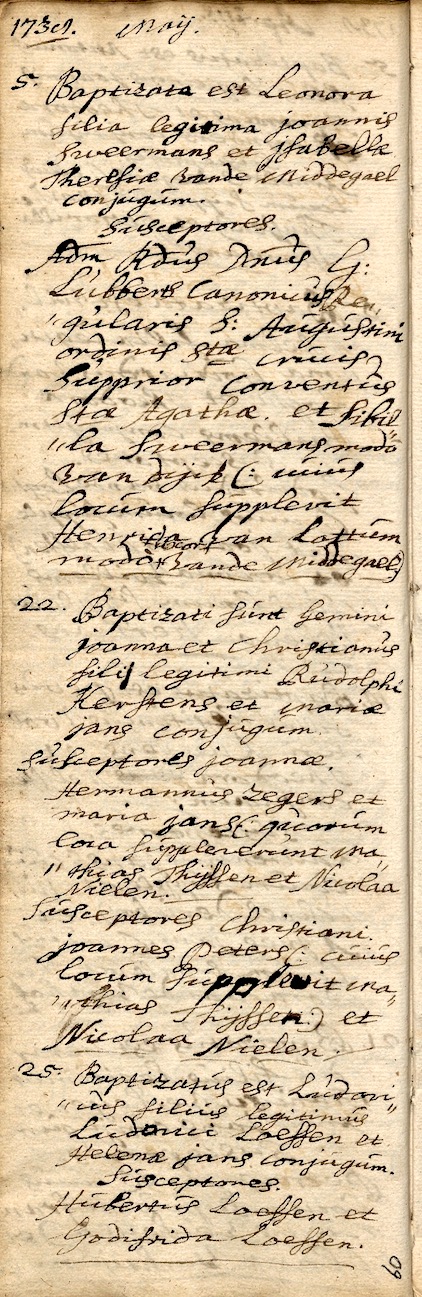 1739. Maij.
5. Baptizata est Leonora
filia legitima joannis
Sweermans et jsabellæ
Theresiæ vande Middegael
conjugum.
Susceptores.
Adm Rdus Dnus G:
Lubbers Canonicus Re„
„gularis S: Augustini
ordinis Stæ crucis
Supprior Conventus
Stæ Agathæ. et Sibil
„la Sweermans modo
van dijck (: cuius
locum supplevit
Henrica van Lottum
modo vande Middegael)
22. Baptizati sunt Gemini
joanna et Christianus
filij legitimi Rudolphi
Kerstens et Mariæ
jans conjugum.
Susceptores joannæ.
Hermannus Zegers et
maria jans (: quorum
loca suppleverunt Ma„
„thias Thijssen et Nicolaa
Nielen.
Susceptores Christiani.
joannes Peters (: cuius
locum Supplevit Ma„
„thias Thijssen:) et
Nicolaa Nielen.
25. Baptizatus est Ludovi„
„cus filius legitimus
Ludovici Loeffen et
Helenæ jans conjugum.
Susceptores.
Hubertus Loeffen et
Godifrida Loeffen.
60